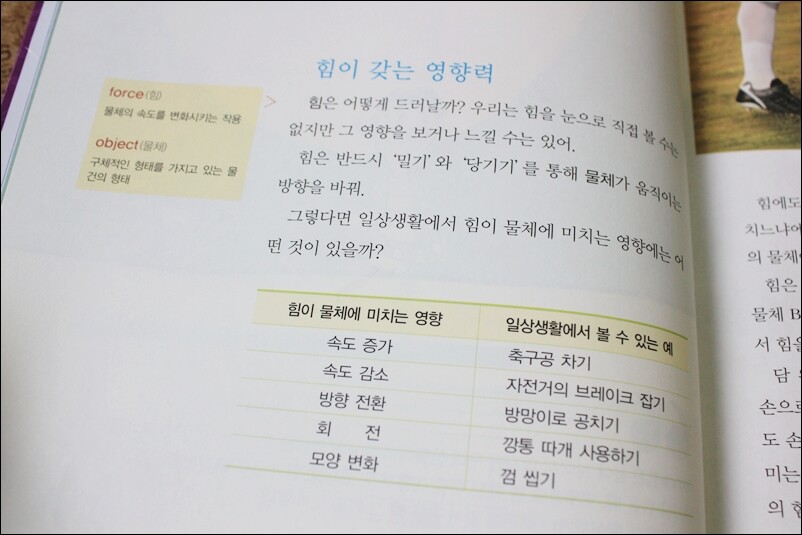 힘이 갖는 영향력
force(힘)
물체의 속도를 변화시키는 작용
object(물체)
구체적인 형태를 가지고 있는 물
건의 형태
힘은 어떻게 드러날까? 우리는 힘을 눈으로 직접 볼 수는
없지만 그 영향을 보거나 느낄 수는 있어.
힘은 반드시 '밀기'와 '당기기'를 통해 물체가 움직이는
방향을 바꿔.
그렇다면 일상생활에서 힘이 물체에 미치는 영향에는 어
떤 것이 있을까?
힘이 물체에 미치는 영향 일상생활에서 볼 수 있는 예
속도 증가 축구공 차기
속도 감소 자전거의 브레이크 잡기
방향 전환 방망이로 공치기
회 전 깡통 따개 사용하기
모양 변화 껌 씹기
힘에도
치느냐에
의 물체
힘은
물체 B
서 힘을
담
손으로
도 손
미는
의 힘